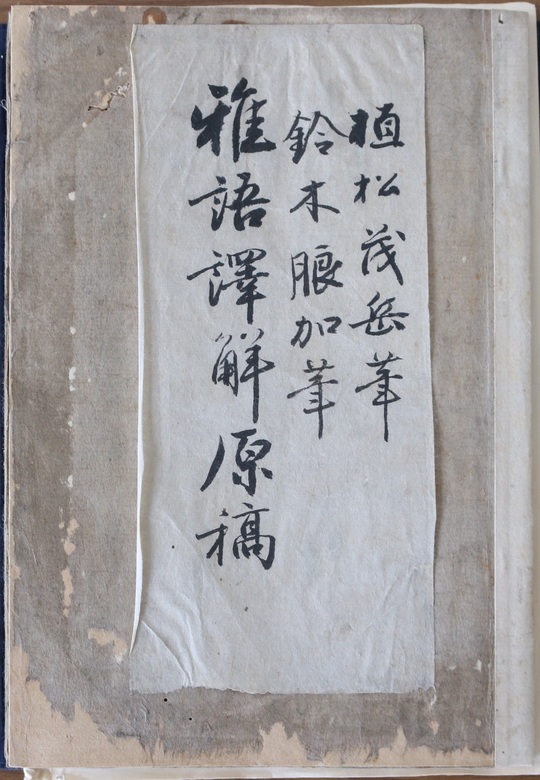 植松茂岳筆
鈴木朖加筆
雅語譯解原稿